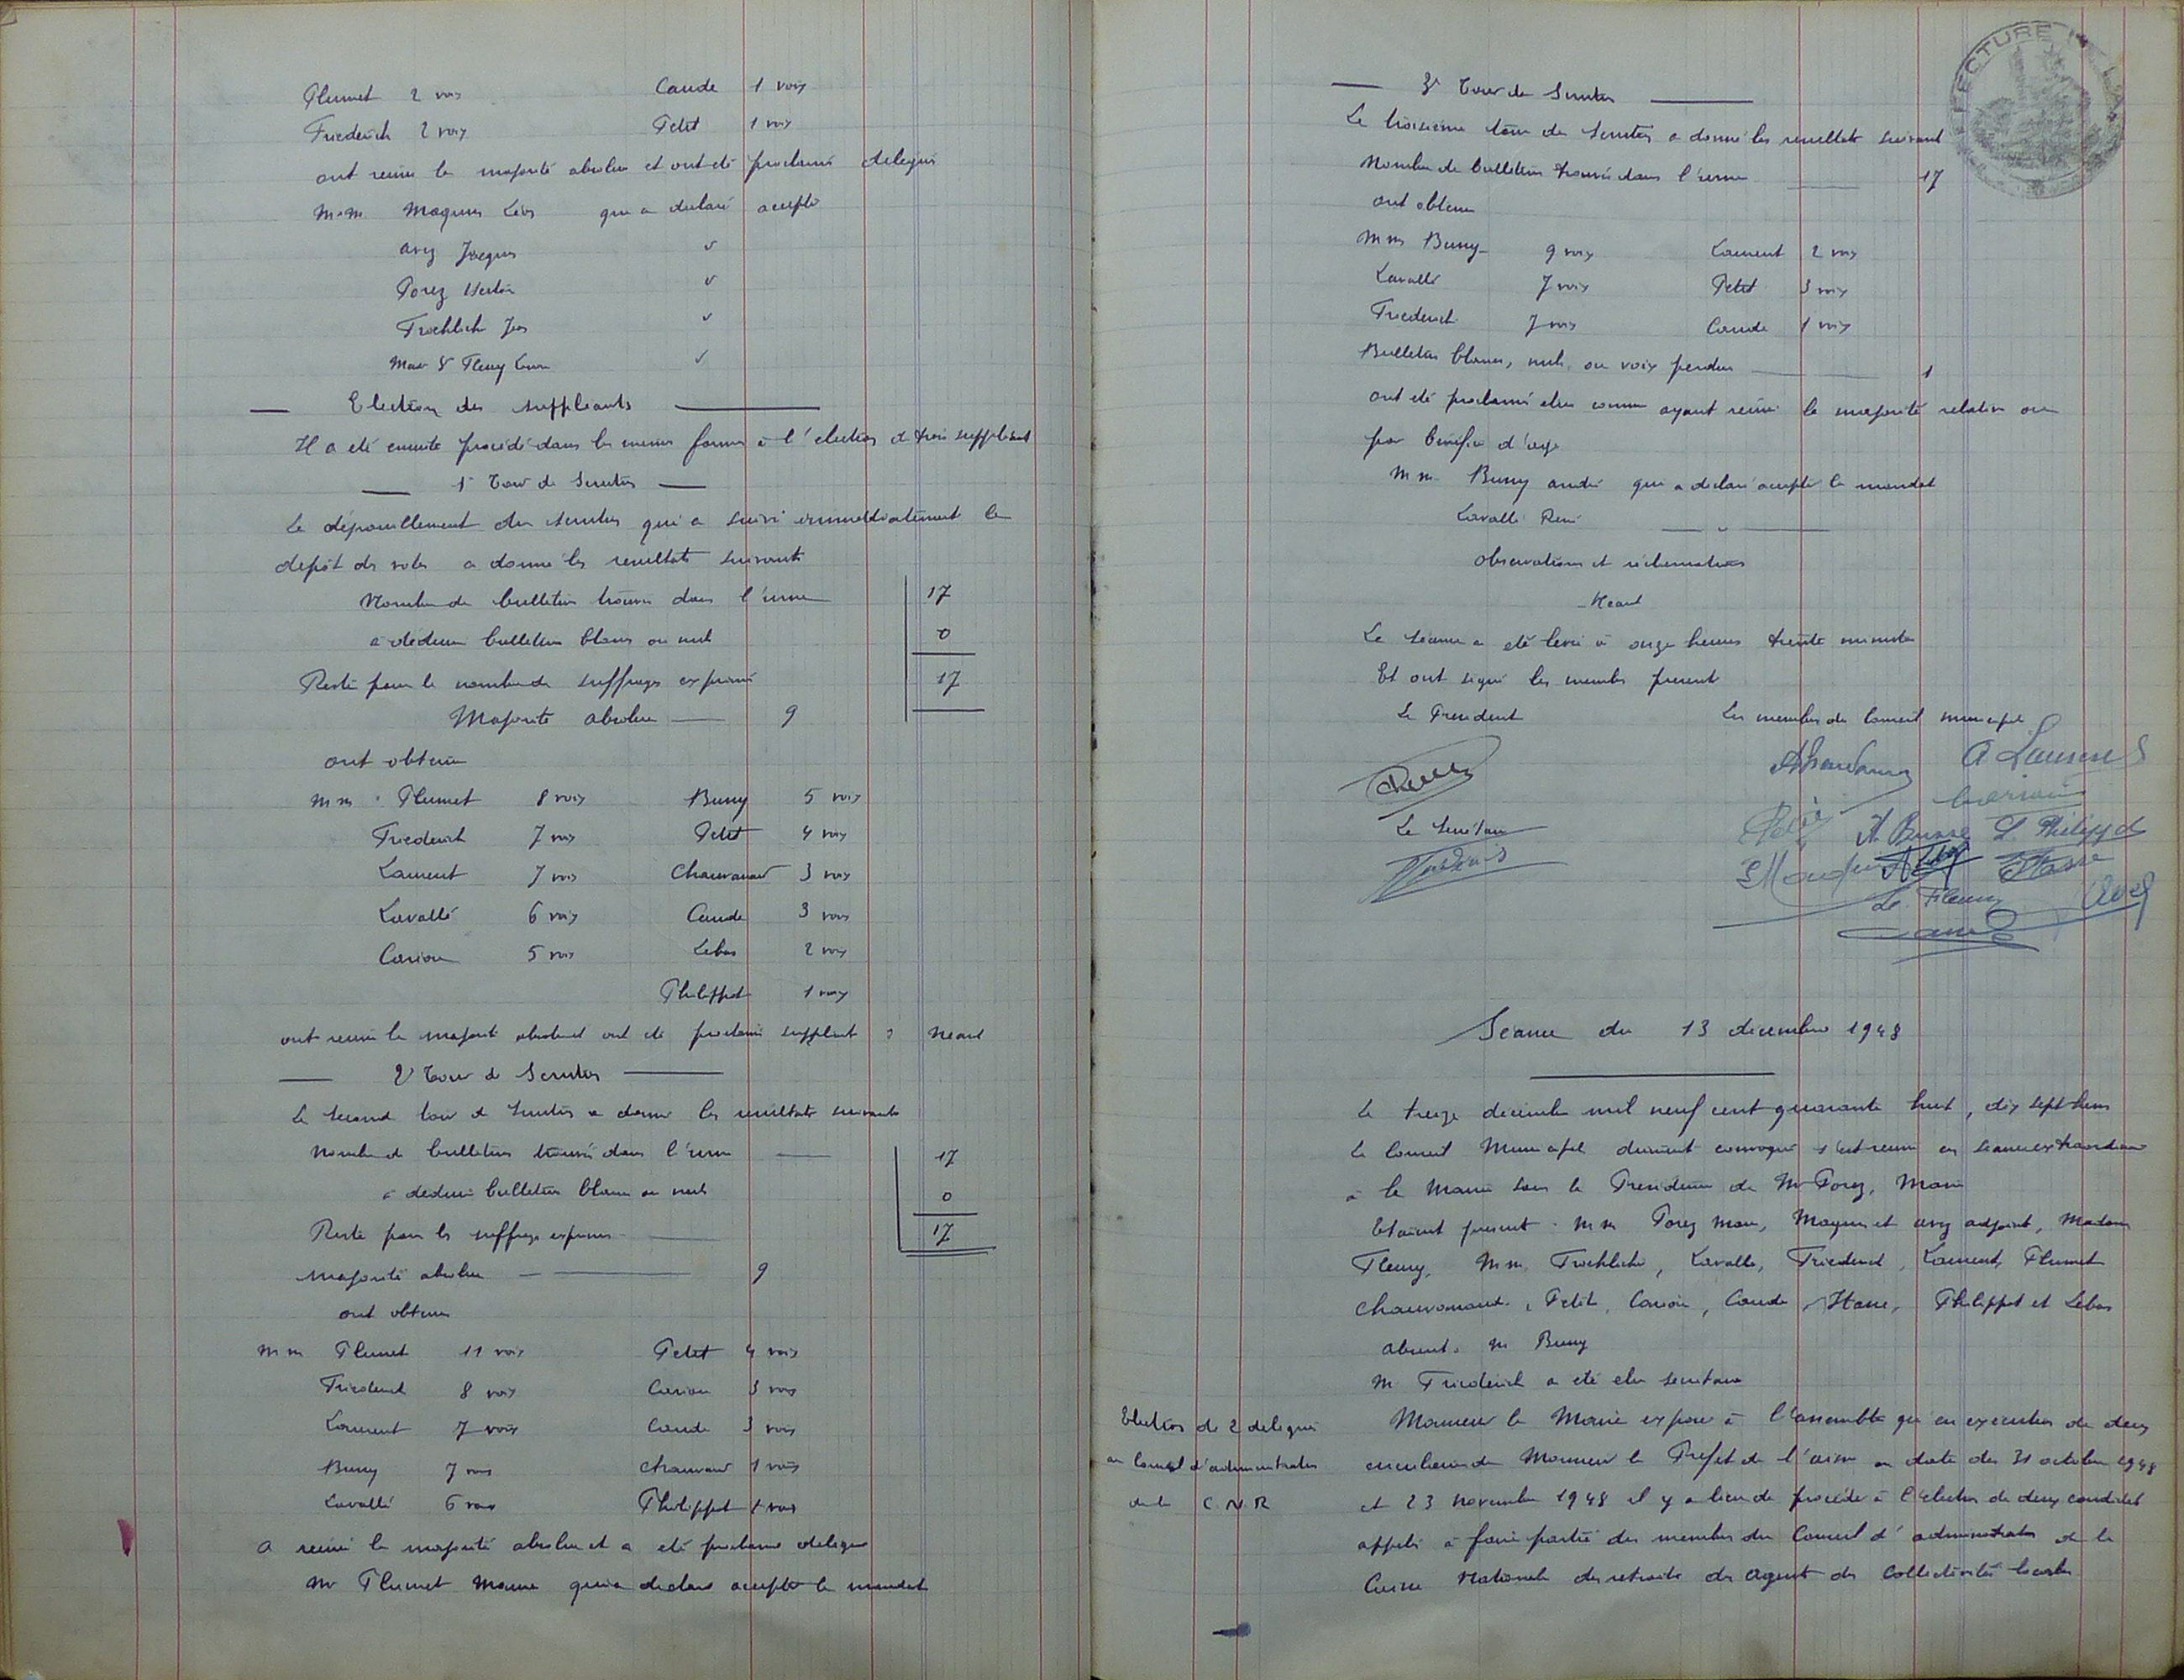 Plumet 2 voix Caude 1 voix
Friederich 2 voix Petit 1 voix
ont reuni la majorité absolue et ont été proclamé delegués
M.M. Magnier Léon qui a declaré accepté
Avez Jacques v
Porez v
Froehlich Jean v
Mme Fleury v
Election des suppléants
Il a eté ensuite procédé dans les memes formes à l'election de trois suppleant
1r Tour de Scrutin
Le dépouillement du scrutin qui a suivi immediatement le
depôt des votes a donné les resultats suivants
Nombre de bulletins trouvés dans l'urne 17
à deduire bulletins blancs ou nuls 0
Reste pour le nombre de suffrages exprimés 17
Majorité absolue 9
ont obtenu
MM. Plumet 8 voix Buny 5 voix
Friederich 7 voix Petit 4 voix
Laurent 7 voix Chauvanaud 3 voix
Lavallé 6 voix Caude 3 voix
Carion 5 voix Lebas 2 voix
Philippot 1 voix
ont reuni la majorité absolue et ont été proclamé suppleant : Neant
2e Tour de Scrutin
Le second tour de scrutin a donné les resultats suivants
Nombre de bulletins trouvés dans l'urne 17
à deduire bulletins blancs ou nuls 0
Reste pour les suffrages exprimés 17
Majorité absolue 9
ont obtenu
MM Plumet 11 voix Petit 4 voix
Friederich 8 voix Carion 3 voix
Laurent 7 voix Caude 3 voix
Buny 7 voix Chauvanaud 1 voix
Lavallé 6 voix Philippot 1 voix
a reuni la majorité absolue et a eté proclamé delegué
Mr Plumet qui a declaré accepté le mandat
3e Tour de Scrutin
Le troisième tour de scrutin a donné les resultats suivant
Nombre de bulletins trouvés dans l'urne 17
ont obtenu
MM Buny 9 voix Laurent 2 voix
Lavallé 7 voix Petit 3 voix
Friederich 7 voix Caude 1 voix
Bulletins blancs, nuls, ou voix perdues 1
ont eté proclamé elus comme ayant reuni la majorité relative ou
par benefice d'age
MM. Buny André qui a declaré accepté le mandat
Lavallé René
Observations et réclamations
Neant
La séance a été levée à onze heures trente minutes
Et ont signé les membres present
Le President Les membres du Conseil municipal
A Laurent
Carion
Petit A. Buny L. Philippot
Le Secrétaire
L. Fleury Avez
PREFECTURE
Séance du 13 décembre 1948
Le treize décembre mil neuf cent quarante huit, dix sept heures
Le Conseil Municipal dument convoqué s'est reuni en séance extraordinaire
à la Mairie sous la Presidence de Mr Porez, Maire
Etaient present : MM Porez maire, Magnier et Avez adjoint, Madame
Fleury, MM. Froehlich, Lavallé, Friederich, Laurent, Plumet
Chauvanaud, Petit, Carion, Caude, Hasse, Philippot et Lebas
Absent. M Buny
M. Friederich a été elu secretaire
Election de 2 delegués
au Conseil d'administration
de la C.N.R
Monsieur le Maire expose à l'assemblée qu'en execution de deux
circulaires de Monsieur le Prefet de l'Aisne en date des 31 octobre 1948
et 23 novembre 1948 il y a lieu de proceder à l'election de deux candidats
appelés à faire partie des membres du Conseil d'administration de la
Caisse Nationale des retraites des Agents des Collectivités locales